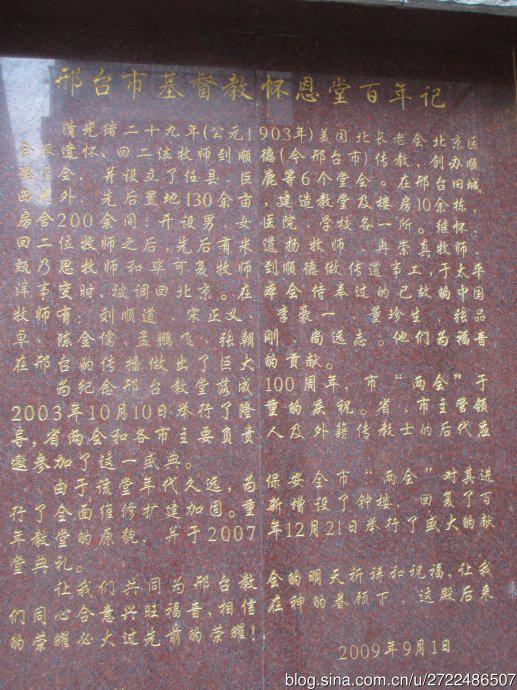 邢台市基督教怀恩堂百年记
清光绪二十九年(公元1903年)美国北长老会北京区
会派遣怀、回二位牧师到顺德(今邢台市)传教,创办顺
德区会,并设立了任县、巨鹿等6个堂会。在邢台旧城
西关外,先后置地130余亩,建造教堂及楼房10余栋,
房舍200余间;开设男、女医院、学校各一所。继怀、
回二位牧师之后,先后有米道扬牧师、冉崇真牧师、
甄乃思牧师和毕可曼牧师到顺德做传道事工,于太平
洋事变时,被调回北京。在本会侍奉过的已故的中国
牧师有:刘顺道、宋正义、李豪一、董珍生、张品
卓、陈金儒、孟鹏飞、张朝刚、尚远志。他们为福音
在邢台的传播做出了巨大的贡献。
为纪念邢台教堂落成100周年,市“两会”于
2003年10月10日举行了隆重的庆祝。省、市主管领
导,省两会和各市主要负责人及外籍传教士的后代应
邀参加了这一盛典。
由于该堂年代久远,为保安全市“两会”对其进
行了全面维修扩建加固。重新增设了钟楼,回复了百
年教堂的原貌,并于2007年12月21日举行了盛大的献
堂典礼。
让我们共同为邢台教会的明天祈祷和祝福,让我
们同心合意兴旺福音,相信在神的眷顾下,这殿后来
的荣耀必大过先前的荣耀!
2009年9月1日
blog.sina.com.cn/u/2722486507